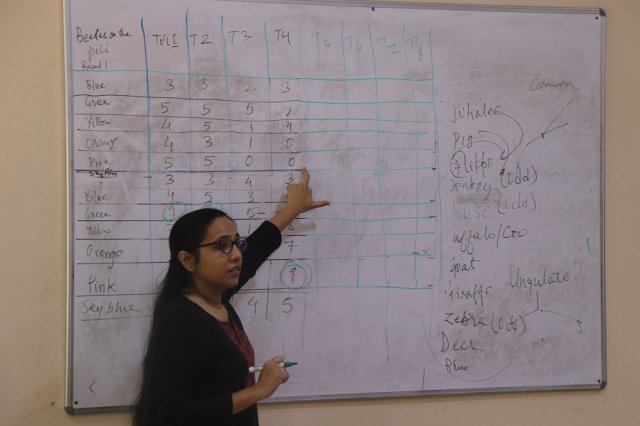 Beetles on the field T01 1 T2 T3 T4 T5 T6 T7 T8
Round 1
Blue 3 3 2 3
Green 5 5 5 2
Yellow 4 5 1 4
Orange 4 3 1 0
Pink 5 5 0 0
3 3 4 3
Blue 4 5 3
Green 9 5
Yellow
Orange 7
Pink 9
Sky blue 4 5
Whales
Pig
Hippo
Donkey (odd)
(odd)
uffalo/Cow
oat
iraffe
Zebra (odd)
Deer
Rhino
Ungulate